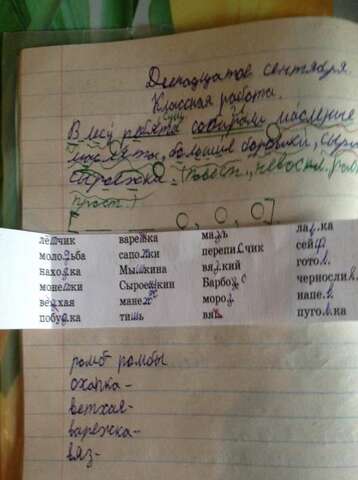 Двенадцатое сентября.
Классная работа.
В лесу ребята собирали масленые
маслята, большие боровики, сырые
сыроежки. (Повест., невоскл.
прост.)
[ О, О, О]
лётчик варежка мазь лавка
молотьба сапожки переписчик сейф
находка Мышкина вязкий готов
монетки Сыроежкин Барбос чернослив
ветхая манеж мороз напев
побудка тишь вяз пуговка
ромб ромбы
охапка-
ветхая-
варежка-
вяз-